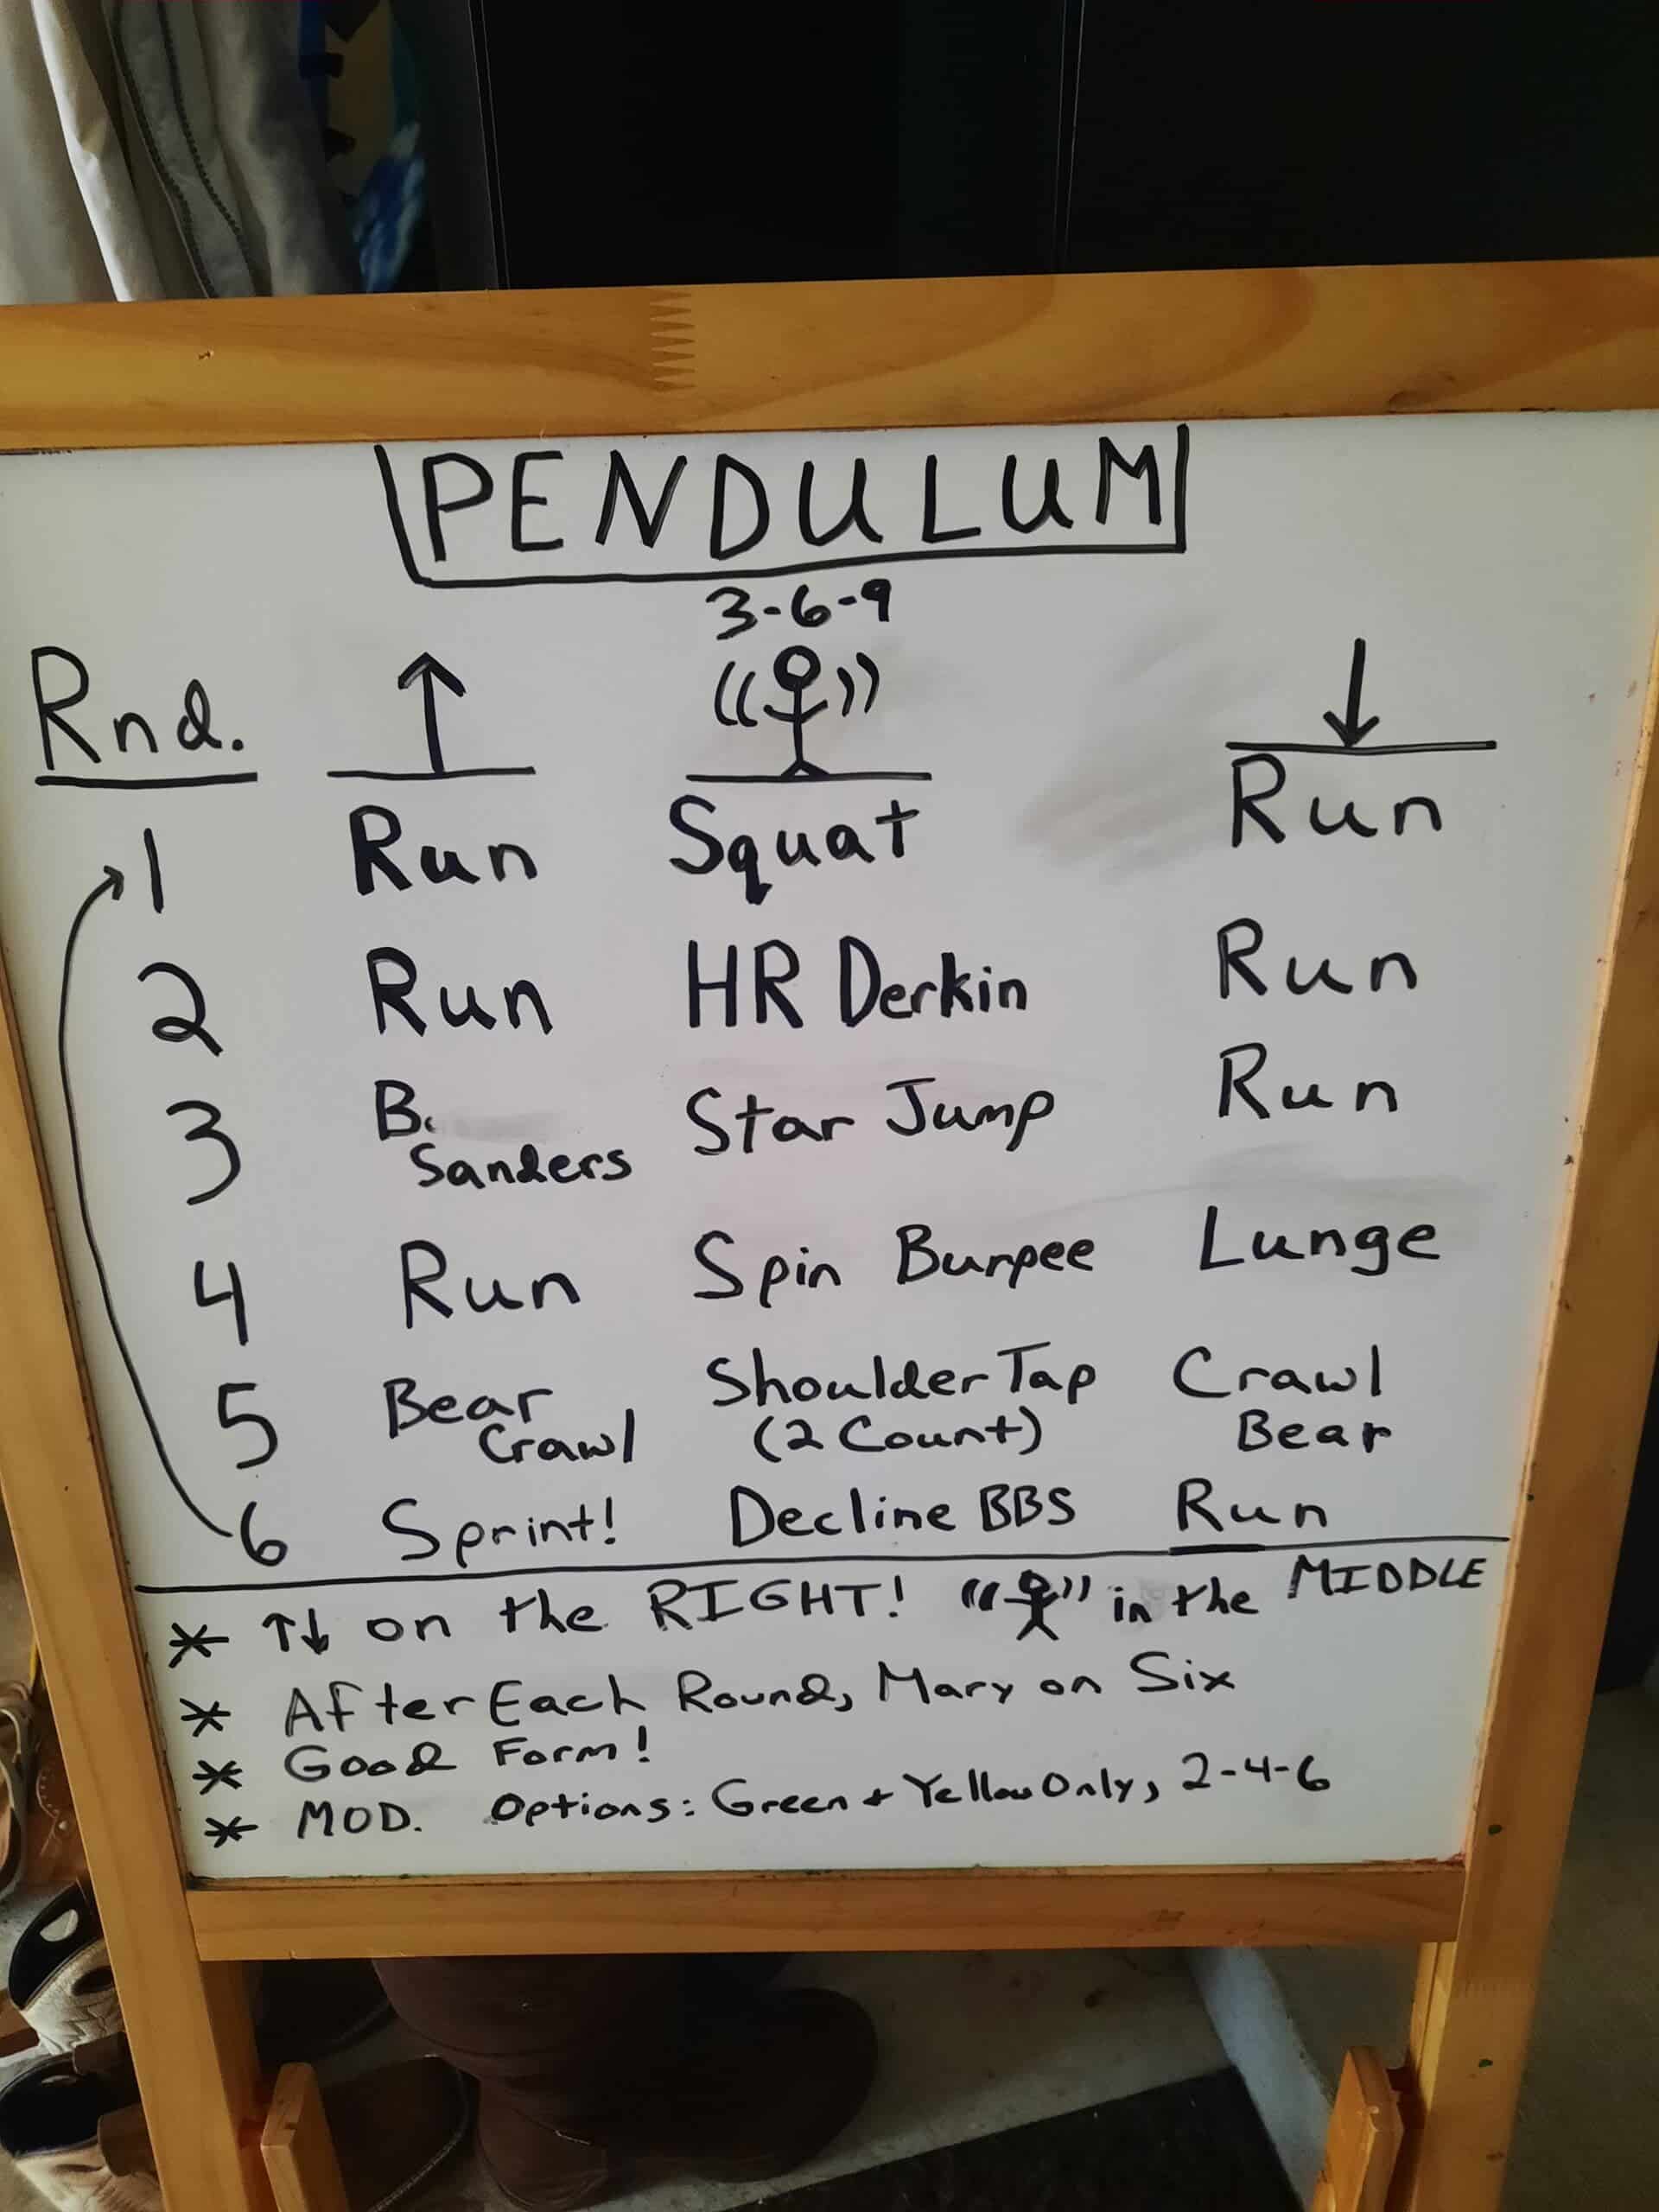 PENDULUM
3-6-9
Rnd. ↑ ↓
1 Run Squat Run
2 Run HR Derkin Run
3 B. Sanders Star Jump Run
4 Run Spin Burpee Lunge
5 Bear Crawl Shoulder Tap (2 Count) Crawl Bear
6 Sprint! Decline BBS Run
* ↑↓ on the RIGHT! in the MIDDLE
* After Each Round, Mary on Six
* Good Form!
* MOD. Options: Green + Yellow Only, 2-4-6